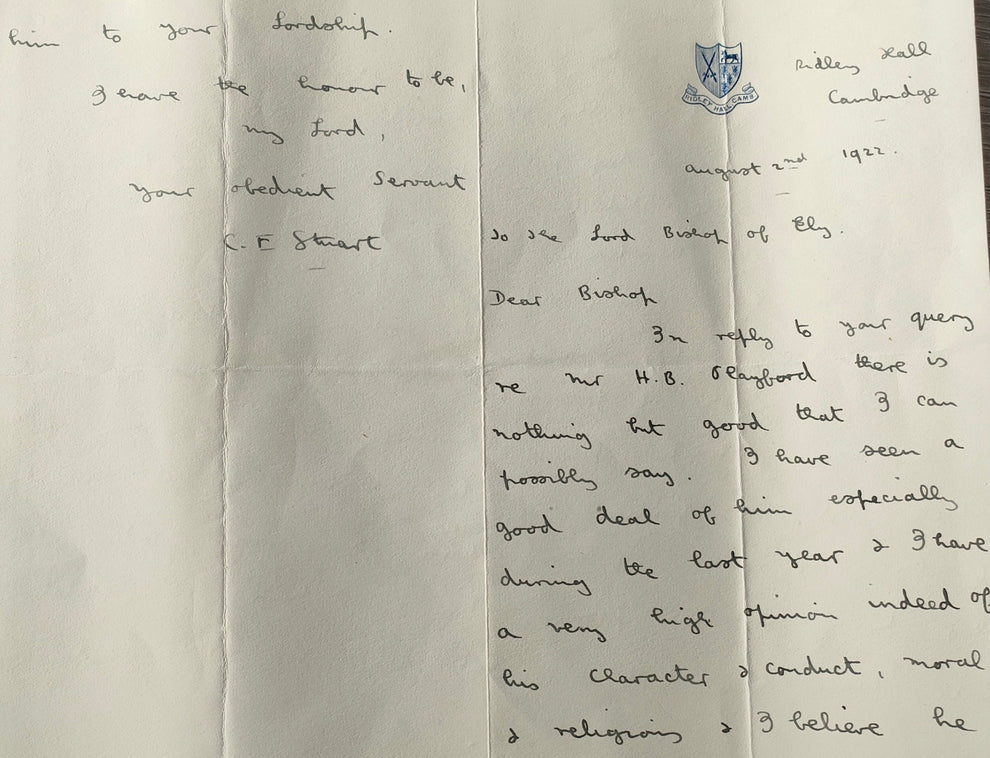 Ridley Hall
Cambridge
RIDLEY HALL CAMB
August 2nd 1922.
To the Lord Bishop of Ely.
Dear Bishop
In reply to your query
re Mr H.B. there is
nothing but good that I can
possibly say. I have seen a
good deal of him especially
during the last year & I have
a very high opinion indeed of
his character & conduct, moral
& religious & I believe he
him to your Lordship.
I have the honour to be,
my Lord,
Your obedient Servant
C. E Stuart